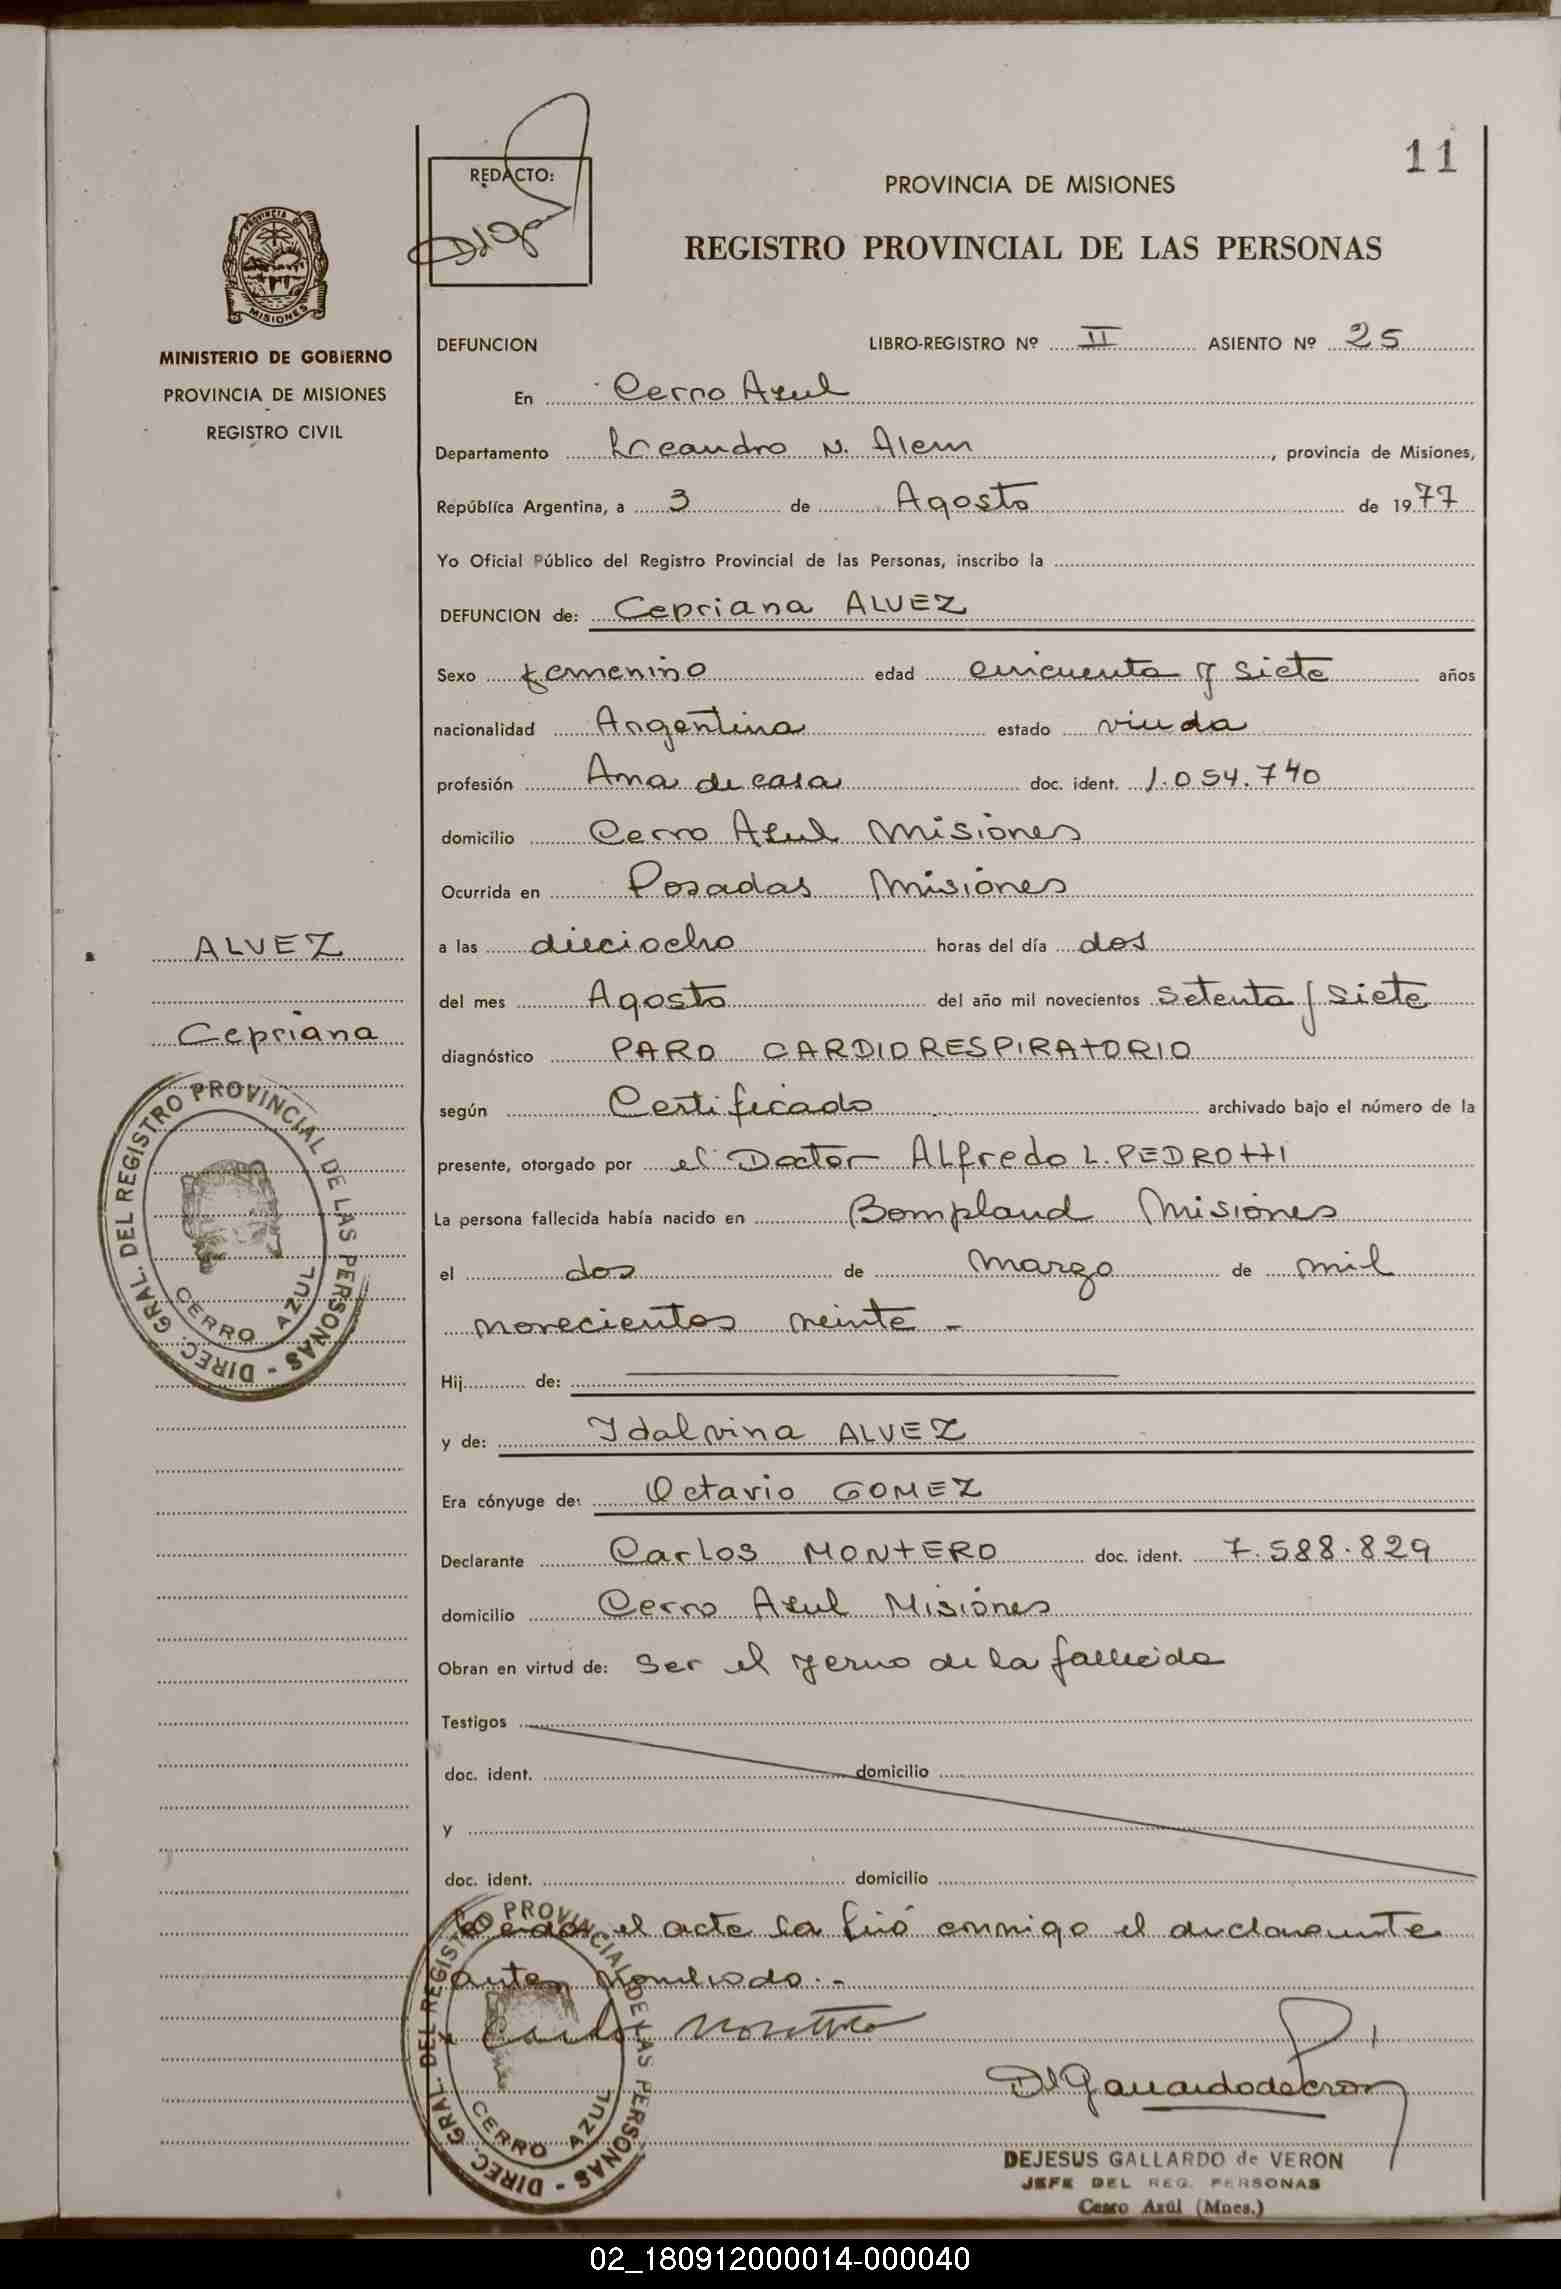 11
REDACTO:
PROVINCIA DE MISIONES
REGISTRO PROVINCIAL DE LAS PERSONAS
PROVINCIA DE
MISIONES
MINISTERIO DE GOBIERNO
PROVINCIA DE MISIONES
REGISTRO CIVIL
DEFUNCION LIBRO-REGISTRO Nº II ASIENTO Nº 25
En Cerro Azul
Departamento Leandro N. Alem, provincia de Misiones,
República Argentina, a 3 de Agosto de 1977
Yo Oficial Público del Registro Provincial de las Personas, inscribo la
DEFUNCION de: Cepriana ALVEZ
Sexo femenino edad cincuenta y siete años
nacionalidad Argentina estado viuda
profesión Ama de casa doc. ident. 1.054.740
domicilio Cerro Azul Misiones
Ocurrida en Posadas Misiones
ALVEZ
Cepriana
a las dieciocho horas del día dos
del mes Agosto del año mil novecientos setenta y siete
diagnóstico PARO CARDIORESPIRATORIO
según Certificado archivado bajo el número de la
presente, otorgado por el Doctor ALfredo L. PEDROTTI
La persona fallecida había nacido en Bompland Misiones
el dos de Marzo de mil
novecientos veinte -
Hij de:
y de: Idalvina ALVEZ
Era cónyuge de: Octavio GOMEZ
Declarante Carlos MONTERO doc. ident. 7.588.829
domicilio Cerro Azul Misiones
Obran en virtud de: Ser el yerno de la fallecida
Testigos
doc. ident. domicilio
y
doc. ident. domicilio
DIREC. GRAL. DEL REGISTRO PROVINCIAL DE LAS PERSONAS -
CERRO AZUL
Leida el acta la firó conmigo el declarante
antes nombrado.-
Carlos Montero
DIREC. GRAL. DEL REGISTRO PROVINCIAL DE LAS PERSONAS -
CERRO AZUL
DEJESUS GALLARDO de VERON
JEFE DEL REG. PERSONAS
Cerro Azúl (Mnes.)
02_180912000014-000040